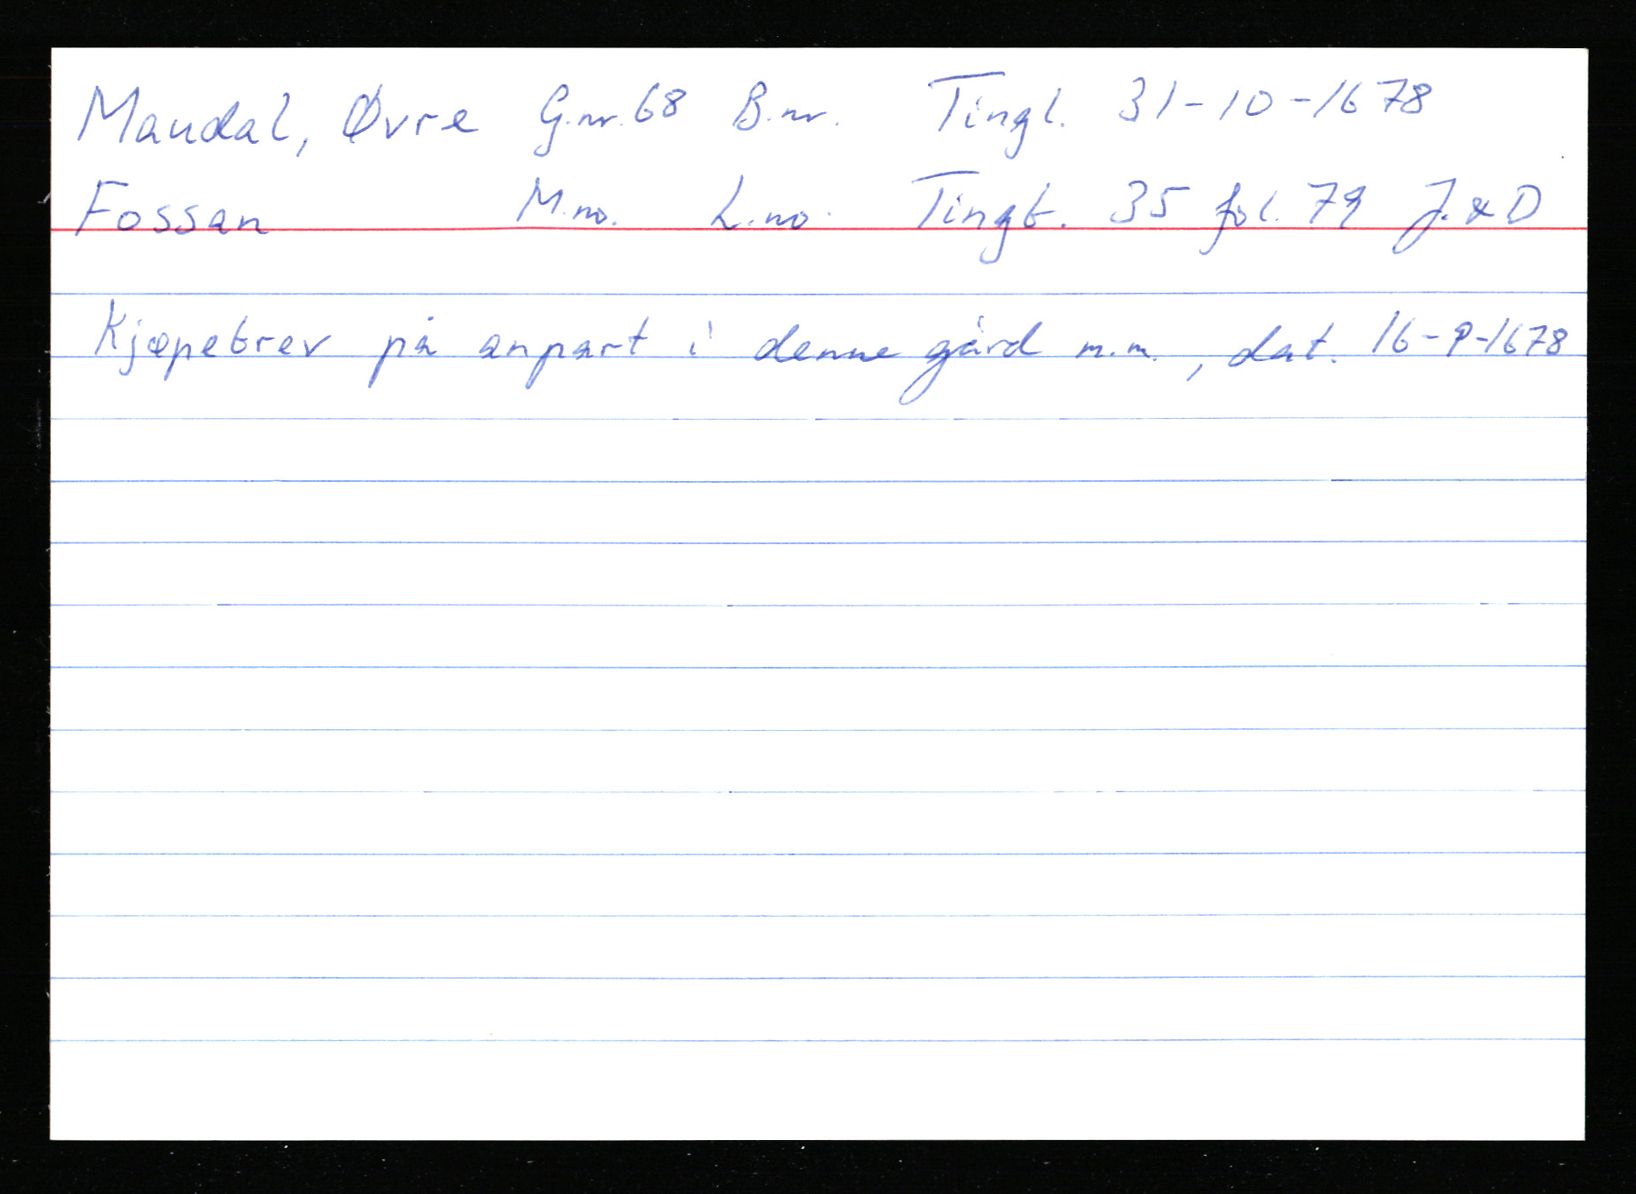 Maudal, Øvre G.nr. 68 B.nr. Tingl. 31-10-1678
Fossan M.no. L.no. Tingb. 35 fol. 79 J. & D
Kjøpebrev på anpart i denne gård m.m., dat.